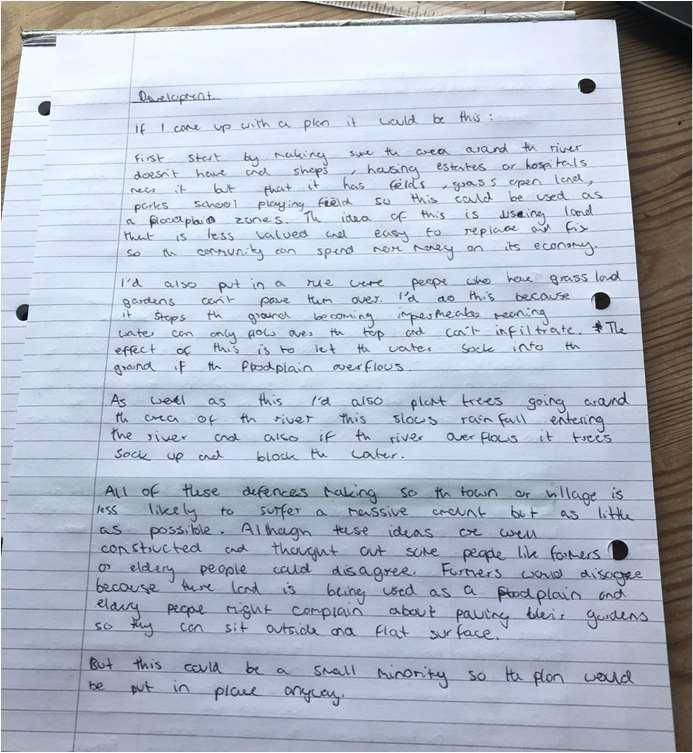 Development
If I come up with a plan it would be this :
First start by making sure the area around the river
doesn't have and shops, housing estates or hospitals
near it but that it has fields, grass open land,
parks school playing field so this could be used as
a floodplain zones. The idea of this is using land
that is less valued and easy to replace and fix
so the community can spend more money on its economy.
I'd also put in a rule were people who have grass land
gardens can't pave them over. I'd do this because
it stops the ground becoming impermeable meaning
water can only flow over the top and can't infiltrate. The
effect of this is to let the water sock into the
ground if the floodplain overflows.
As well as this I'd also plant trees going around
the area of the river this slows rain fall entering
the river and also if the river overflows it trees
sock up and block the water.
All of these defences making so the town or village is
less likely to surfer a massive amount but as little
as possible. Although these ideas are well
constructed and thought out some people like farmers
or eldery people could disagree. Farmers would disagree
because there land is being used as a floodplain and
eldery people might complain about paving their gardens
so they can sit outside on a flat surface.
But this could be a small minority so the plan would
be put in place anyway.